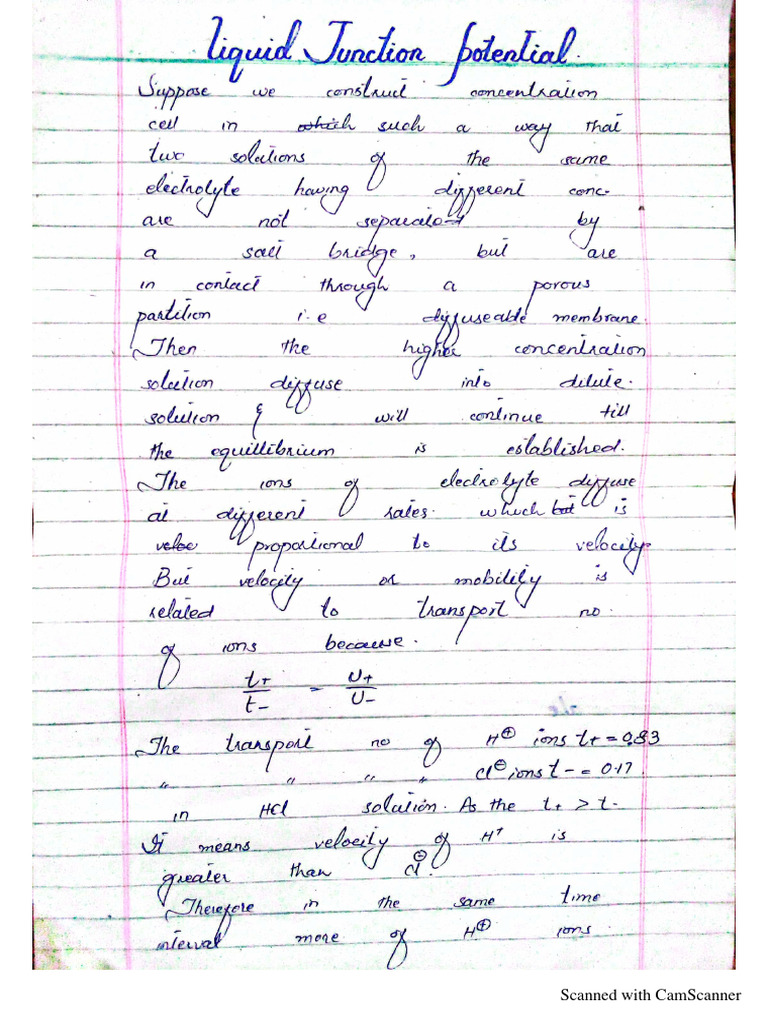 Liquid Junction potential.
Suppose we construct concentration
cell in which such a way that
two solutions of the same
electrolyte having different conc-
are not separated by
a salt bridge, but are
in contact through a porous
partition i.e diffuseable membrane.
Then the higher concentration
solution diffuse into dilute.
solution & will continue till
the equillibrium is established.
The ions of electrolyte diffuse
at different rates. which but is
veloc proportional to its velocity.
But velocity or mobility is
related to transport no.
of ions because.
t+/t- = U+/U-
The transport no of H⊕ ions t+ = 0.83
" " " " Cl⊖ ions t- = 0.17
in HCl solution. As the t+ > t-
It means velocity of H+ is
greater than Cl⊖.
Therefore in the same time
interval more of H⊕ ions
Scanned with CamScanner